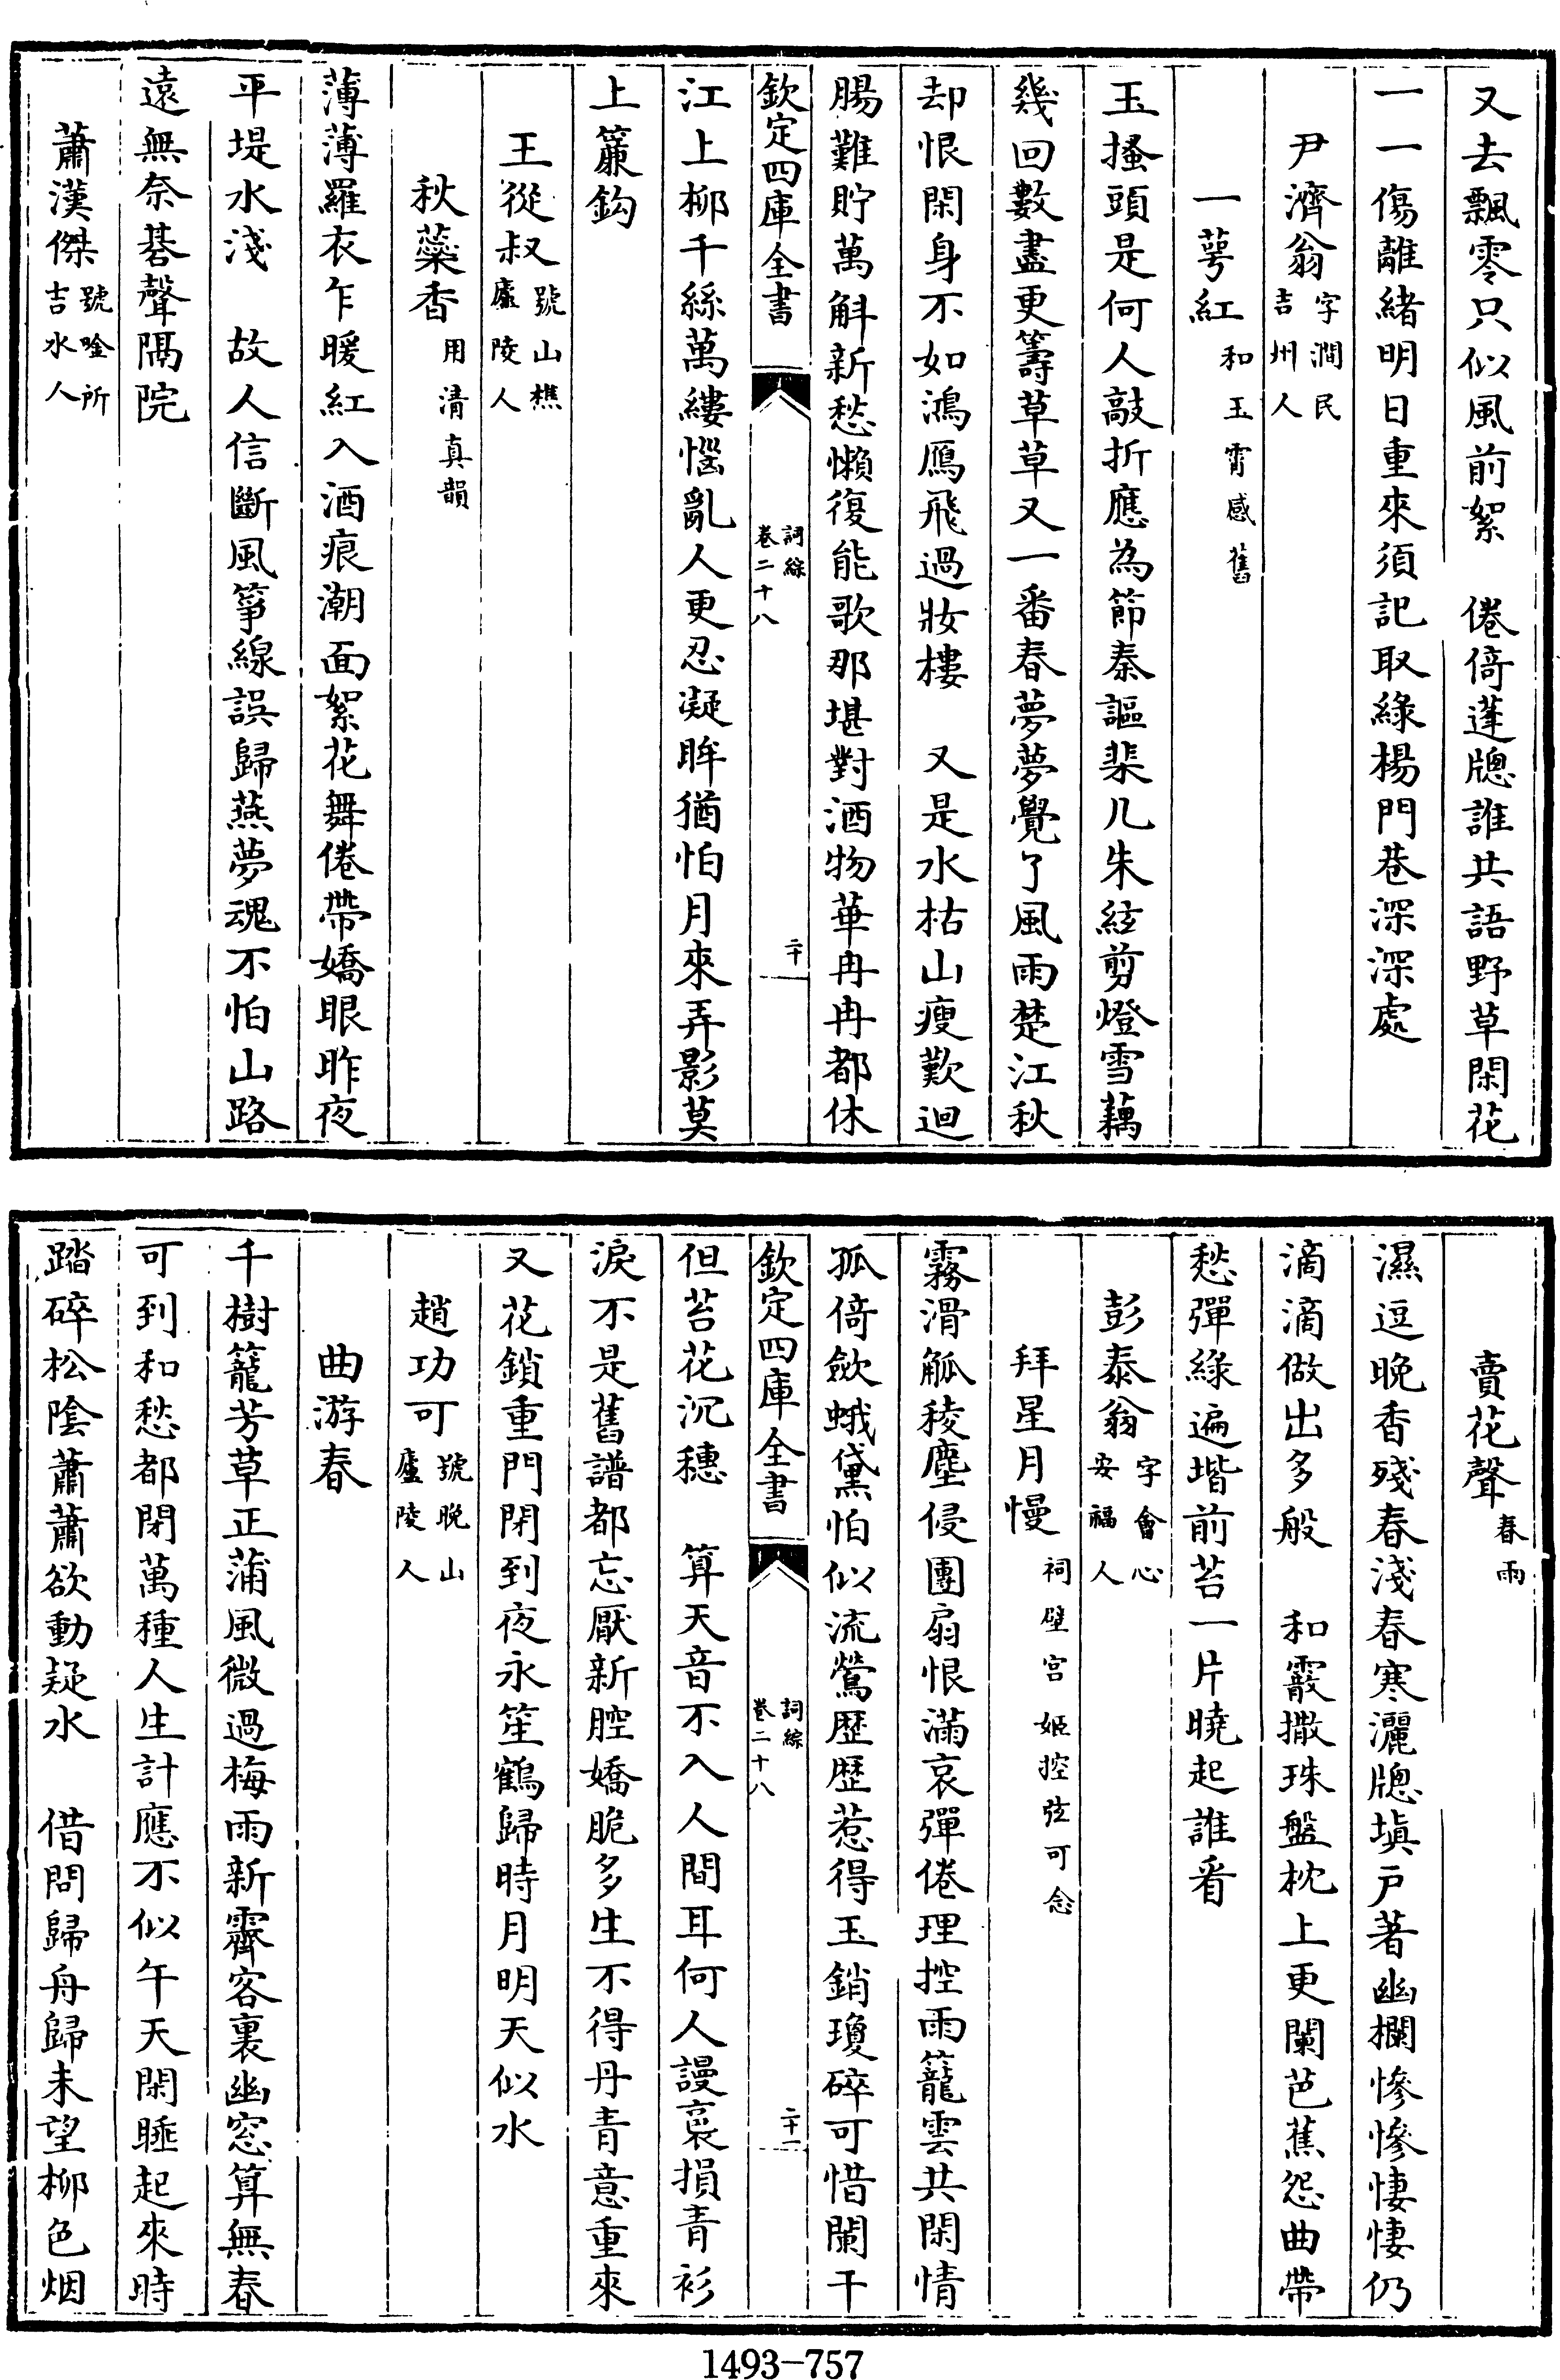 又去飄零只似風前絮　倦倚蓬牕誰共語野草閑花
一一傷離緒明日重來須記取綠楊門巷深深處
尹濟翁字澗民吉州人
一萼紅和玉霄感舊
玉搔頭是何人敲折應為節秦謳棐几朱絃剪燈雪藕
幾回數盡更籌草草又一番春夢夢覺了風雨楚江秋
却恨閑身不如鴻鴈飛過妝樓　又是水枯山瘦歎迴
腸難貯萬斛新愁懶復能歌那堪對酒物華冉冉都休
欽定四庫全書　詞綜卷二十八　二十
江上柳千絲萬縷惱亂人更忍凝眸猶怕月來弄影莫
上簾鈎
王從叔號山樵廬陵人
秋蘂香用清真韻
薄薄羅衣乍暖紅入酒痕潮面絮花舞倦帶嬌眼昨夜
平堤水淺　故人信斷風箏線誤歸燕夢魂不怕山路
遠無奈碁聲隔院
蕭漢傑號唫所吉水人
賣花聲春雨
濕逗晚香殘春淺春寒灑牕填戶著幽欄慘慘悽悽仍
滴滴做出多般　和霰撒珠盤枕上更闌芭蕉怨曲帶
愁彈綠遍堦前苔一片曉起誰看
彭泰翁字會心安福人
拜星月慢祠壁宫姬控弦可念
霧滑觚稜塵侵團扇恨滿哀彈倦理控雨籠雲共閑情
孤倚斂蛾黛怕似流鶯歷歷惹得玉銷瓊碎可惜闌干
欽定四庫全書　詞綜卷二十八　二十一
但苔花沉穗　算天音不入人間耳何人謾裛損青衫
淚不是舊譜都忘厭新腔嬌脆多生不得丹青意重來
又花鎖重門閉到夜永笙鶴歸時月明天似水
趙功可號晚山廬陵人
曲游春
千樹籠芳草正蒲風微過梅雨新霽客裏幽窓算無春
可到和愁都閉萬種人生計應不似午天閑睡起來時
踏碎松陰蕭蕭欲動疑水　借問歸舟歸未望柳色烟
1493-757